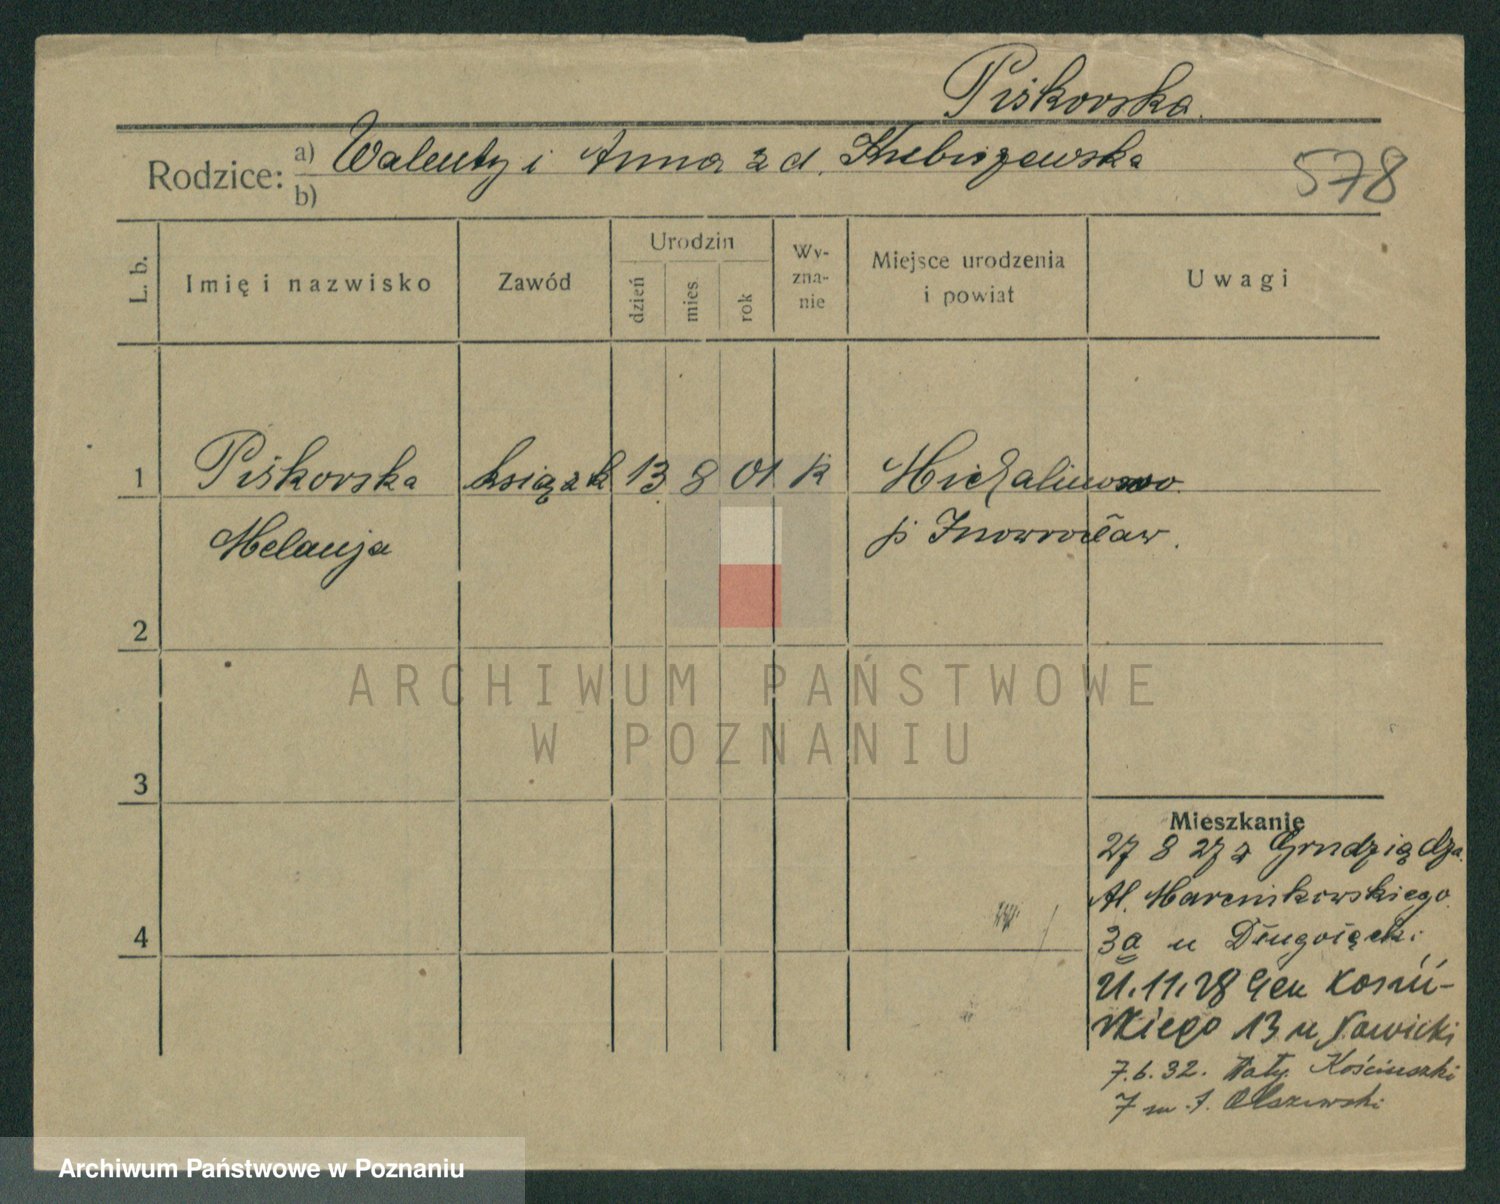 Piskorska
Rodzice: a) Walenty i Anna z d.
b)
578
L. b.
Imię i nazwisko
Zawód
Urodzin
dzień
mies.
rok
Wy-
zna-
nie
Miejsce urodzenia
i powiat
Uwagi
1 Piskorska książk 13 8 01 k Michalinowo
Melanja p. Inowrocław.
2
3
4
Mieszkanie
27 8 27 z Grudziądza
Al. Marcinkowskiego
3a u
21.11.28 Gen
13 u Nawicki
7.6.32. Kościuszki
7 m. Olszewski
ARCHIWUM PAŃSTWOWE
W POZNANIU
Archiwum Państwowe w Poznaniu